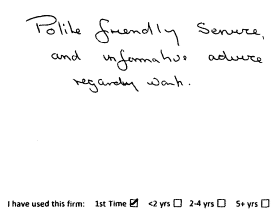 Polite friendly Service,
and informative advice
regarding work.
I have used this firm: 1st Time ☑ <2 yrs ☐ 2-4 yrs ☐ 5+ yrs ☐